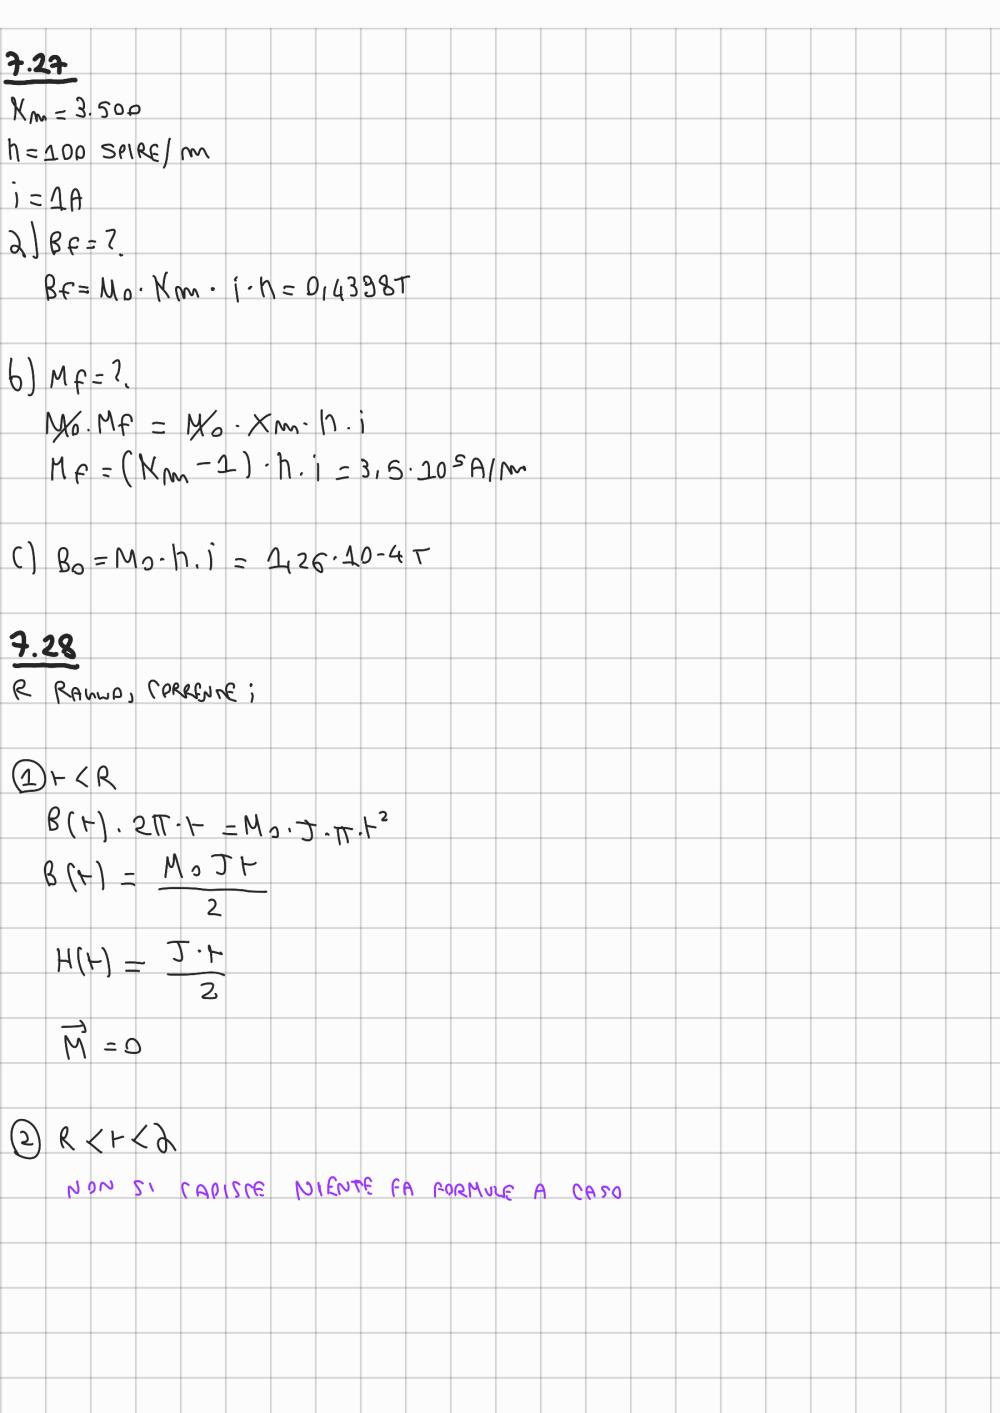 7.27
Km = 3.500
h = 100 SPIRE/m
i = 1A
a) Bf = ?
Bf = M0 · Km · i · h = 0,4398T
b) Mf = ?
M0 · Mf = M0 · Xm · h · i
Mf = (Km - 1) · h · i = 3,5 · 10^5 A/m
c) B0 = M0 · h · i = 1,26 · 10-4 T
7.28
R RAGGIO, CORRENTE i
① r < R
B(r) · 2π · r = M0 · J · π · r²
B(r) = M0 J r / 2
H(r) = J · r / 2
M⃗ = 0
② R < r < a
NON SI CAPISCE NIENTE FA FORMULE A CASO